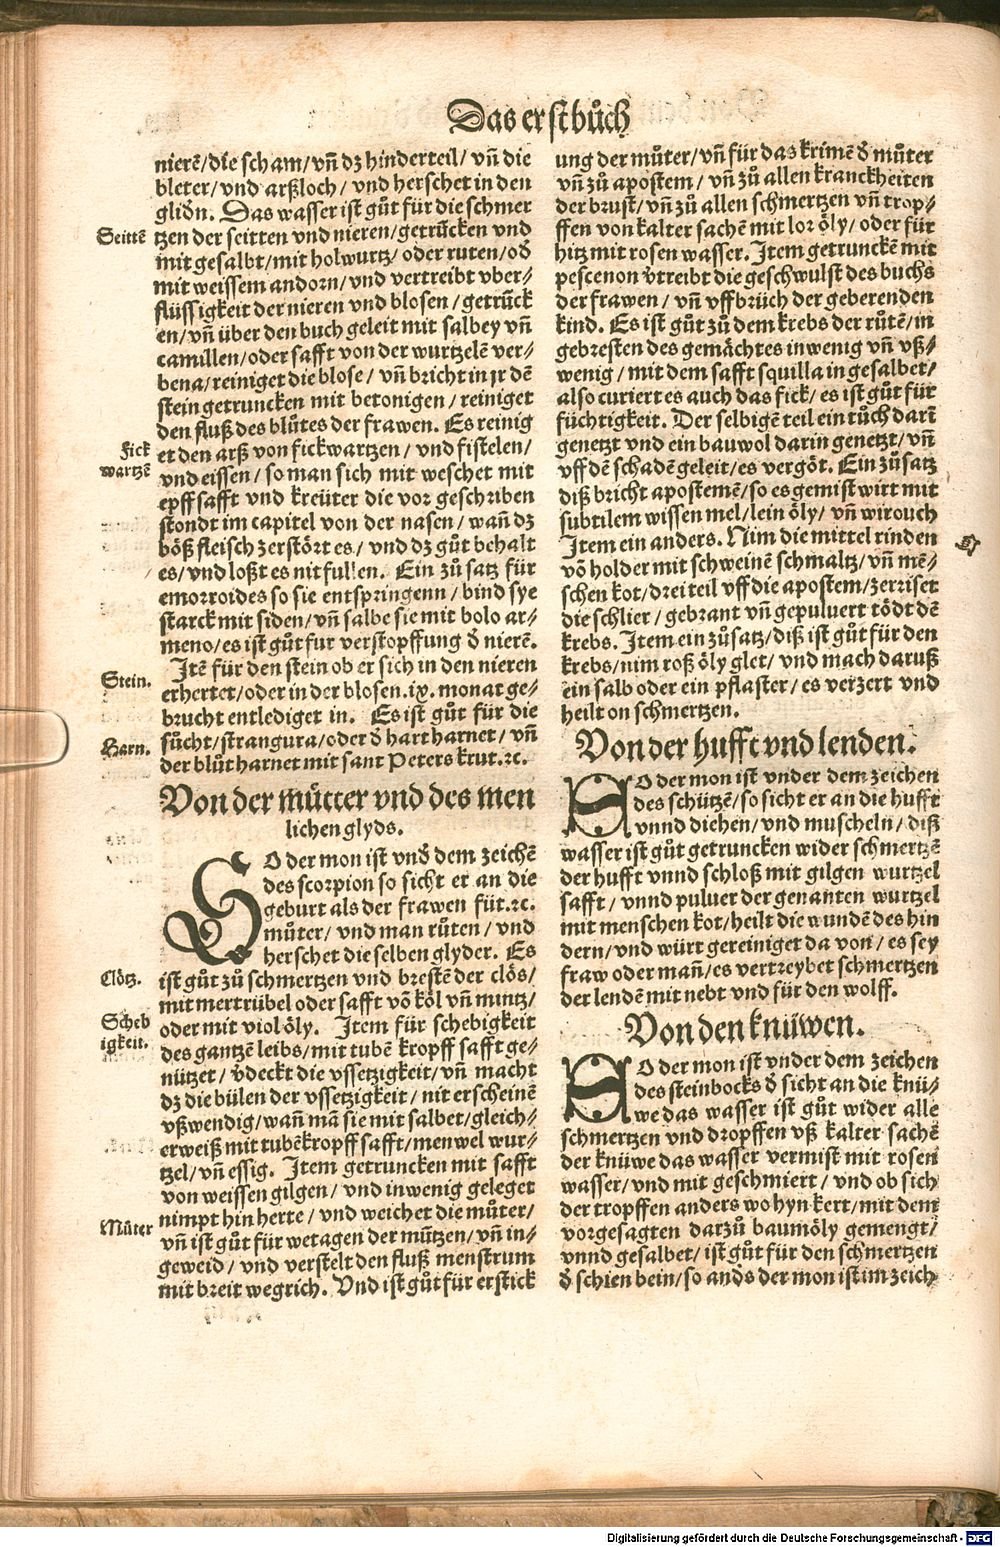 Das erst bůch
nierẽ/die scham/vñ dz hinderteil/vñ die
bleter/vnd arßloch/vnd herschet in den
glidn. Das wasser ist gůt für die schmer
Seittẽ
tzen der seitten vnd nieren/getrücken vnd
mit gesalbt/mit holwurtz/oder ruten/od
mit weissem andorn/vnd vertreibt vber⸗
flüssigkeit der nieren vnd blosen/getrück
en/vñ über den buch geleit mit salbey vñ
camillen/oder safft von der wurtzelẽ ver⸗
bena/reiniget die blose/vñ bricht in jr dẽ
stein getruncken mit betonigen/reiniget
den fluß des blůtes der frawen. Es reinig
Fick
wartzẽ
et den arß von fickwartzen/vnd fistelen/
vnd eissen/so man sich mit weschet mit
epff safft vnd kreüter die vor geschriben
stondt im capitel von der nasen/wañ dz
böß fleisch zerstört es/vnd dz gůt behalt
es/vnd loßt es nit fullen. Ein zů satz für
emorroides so sie entspringenn/bind sye
starck mit siden/vñ salbe sie mit bolo ar⸗
meno/es ist gůt fur verstopffung d nierẽ.
Stein.
Itẽ für den stein ob er sich in den nieren
erhertet/oder in der blosen.ix.monat ge⸗
brucht entlediget in. Es ist gůt für die
Harn.
sůcht/strangura/oder d hart harnet/vñ
der blůt harnet mit sant Peters krut.⁊c.
Von der můtter vnd des men
lichen glyds.
SO der mon ist vnd dem zeichẽ
des scorpion so sicht er an die
geburt als der frawen füt.⁊c.
můter/vnd man růten/vnd
herschet die selben glyder. Es
Clötz.
ist gůt zů schmertzen vnd brestẽ der clös/
mit mertrübel oder safft võ köl vñ mintz/
Scheb
igkeit.
oder mit viol öly. Item für schebigkeit
des gantzẽ leibs/mit tubẽ kropff safft ge⸗
nützet/vdeckt die vssetzigkeit/vñ macht
dz die bülen der vssetzigkeit/nit erscheinẽ
vßwendig/wañ mã sie mit salbet/gleich⸗
erweiß mit tubẽkropff safft/menwel wur⸗
tzel/vñ essig. Item getruncken mit safft
von weissen gilgen/vnd inwenig geleget
Můter
nimpt hin herte/vnd weichet die můter/
vñ ist gůt für wetagen der mützen/vñ in⸗
geweid/vnd verstelt den fluß menstrum
mit breit wegrich. Vnd ist gůt für erstick
ung der můter/vñ für das krimẽ d můter
vñ zů apostem/vñ zů allen kranckheiten
der brust/vñ zů allen schmertzen vñ trop⸗
ffen von kalter sachẽ mit lor öly/oder für
hitz mit rosen wasser. Item getrunckẽ mit
pescenon vtreibt die geschwulst des buchs
der frawen/vñ vffbrüch der geberenden
kind. Es ist gůt zů dem krebs der růtẽ/in
gebresten des gemächtes inwenig vñ vß⸗
wenig/mit dem safft squilla in gesalbet/
also curiert es auch das fick/es ist gůt für
füchtigkeit. Der selbigẽ teil ein tůch darĩ
genetzt vnd ein bauwol darin genetzt/vñ
vff dẽ schadẽ geleit/es vergöt. Ein zůsatz
diß bricht apostemẽ/so es gemist wirt mit
subtilem wissen mel/lein öly/vñ wirouch
Item ein anders. Nim die mittel rinden
võ holder mit schweinẽ schmaltz/vñ mẽ⸗
schen kot/drei teil vff die apostem/zerriset
die schlier/gebrant vñ gepuluert tödt dẽ
krebs. Item ein zůsatz/diß ist gůt für den
krebs/nim roß öly glet/vnd mach daruß
ein salb oder ein pflaster/es verzert vnd
heilt on schmertzen.
Von der hufft vnd lenden.
SO der mon ist vnder dem zeichen
des schützẽ/so sicht er an die hufft
vnnd diehen/vnd muscheln/diß
wasser ist gůt getruncken wider schmertzẽ
der hufft vnnd schloß mit gilgen wurtzel
safft/vnnd puluer der genanten wurtzel
mit menschen kot/heilt die wundẽ des hin
dern/vnd würt gereiniget da von/es sey
fraw oder mañ/es vertreybet schmertzen
der lendẽ mit nebt vnd für den wolff.
Von den knüwen.
SO der mon ist vnder dem zeichen
des steinbocks d sicht an die knü⸗
we das wasser ist gůt wider alle
schmertzen vnd dropffen vß kalter sachẽ
der knüwe das wasser vermist mit rosen
wasser/vnd mit geschmiert/vnd ob sich
der tropffen anders wo hyn kert/mit dem
vorgesagten darzů baumöly gemengt/
vnnd gesalbet/ist gůt für den schmertzen
d schien bein/so ands der mon ist im zeich
Digitalisierung gefördert durch die Deutsche Forschungsgemeinschaft - DFG